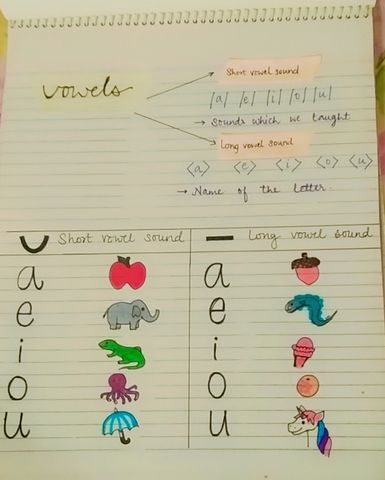 vowels
Short vowel sound
|a| |e| |i| |o| |u|
→ Sounds which we taught
Long vowel sound
<a> <e> <i> <o> <u>
→ Name of the Letter.
Short vowel sound
Long vowel sound
a a
e e
i i
o o
u u